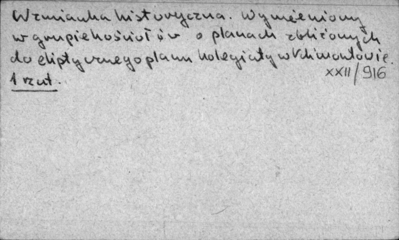 Wzmianka historyczna. Wymieniony
w grupie kościołów o planach zbliżonych
do eliptycznego planu kolegiaty w Klimontowie.
XXII/916
1 rzut.